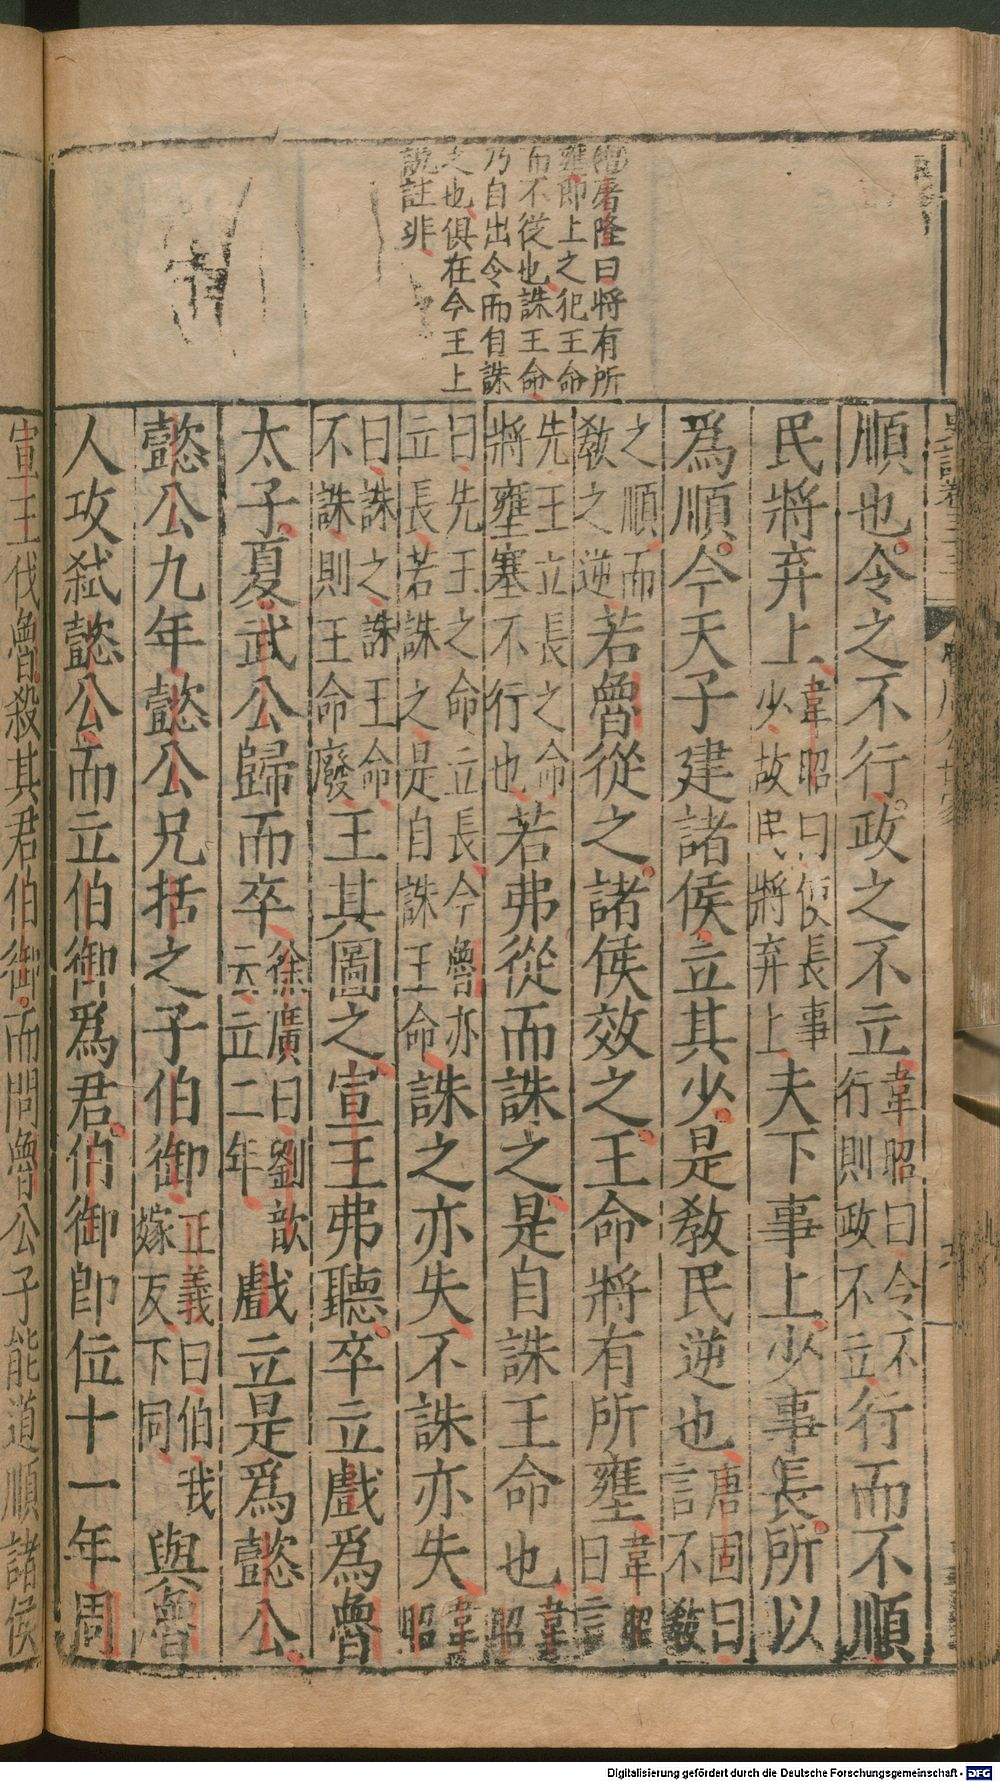 屠隆曰將有所
壅即上之犯王命
而不從也誅王命
乃自出令而自誅
之也俱在今王上
說註非
順也令之不行政之不立韋昭曰令不行則政不立行而不順
民將弃上韋昭曰使長事少故民將弃上夫下事上少事長所以
爲順今天子建諸侯立其少是教民逆也唐固曰言不教
之順而教之逆若魯從之諸侯效之王命將有所壅韋昭曰言
先王立長之命將壅塞不行也若弗從而誅之是自誅王命也韋昭
曰先王之命立長今魯亦立長若誅之是自誅王命誅之亦失不誅亦失韋昭
曰誅之誅王命不誅則王命廢王其圖之宣王弗聽卒立戲爲魯
太子夏武公歸而卒徐廣曰劉歆云立二年戲立是爲懿公
懿公九年懿公兄括之子伯御正義曰伯我嫁反下同與魯
人攻弑懿公而立伯御爲君伯御即位十一年周
宣王伐魯殺其君伯御而問魯公子能道順諸侯
Digitalisierung gefördert durch die Deutsche Forschungsgemeinschaft - DFG